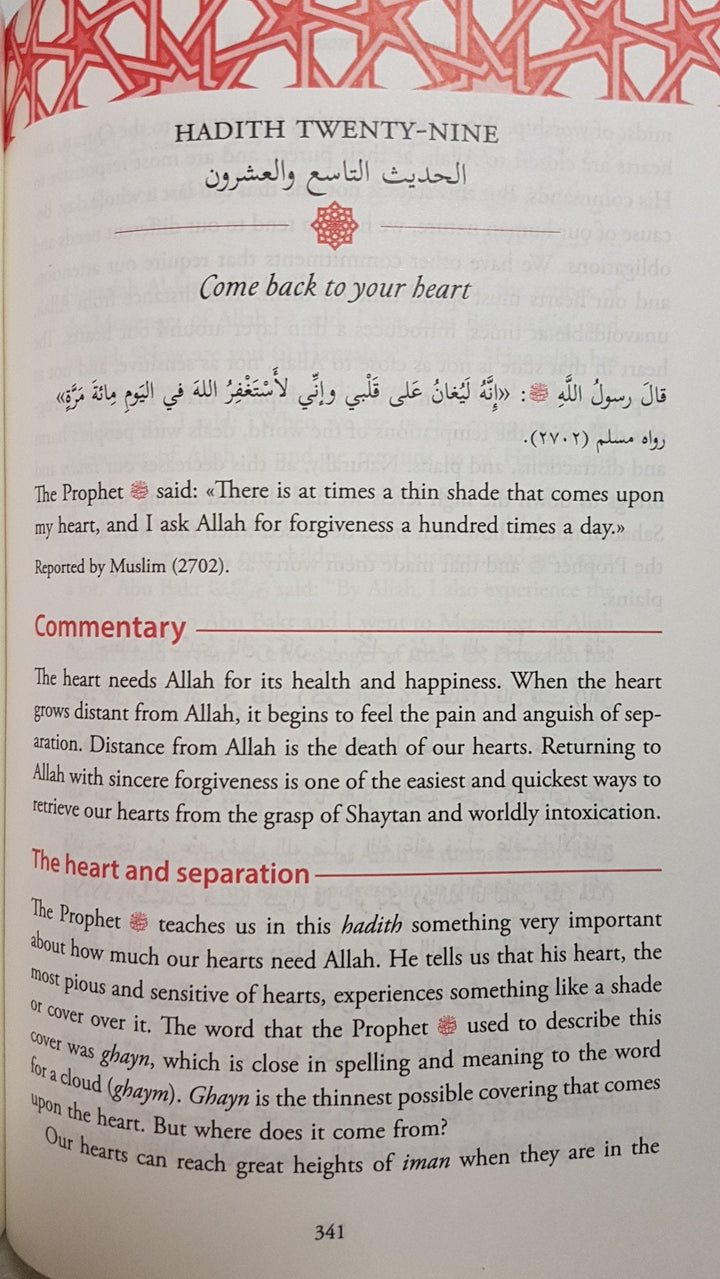 HADITH TWENTY-NINE
الحديث التاسع والعشرون
Come back to your heart
قالَ رسولُ اللَّهِ ﷺ: «إِنَّهُ لَيُغانُ عَلى قَلْبي وإِنِّي لأَسْتَغْفِرُ اللهَ في اليَومِ مِائةَ مَرَّةٍ»
رواه مسلم (٢٧٠٢).
The Prophet ﷺ said: «There is at times a thin shade that comes upon
my heart, and I ask Allah for forgiveness a hundred times a day.»
Reported by Muslim (2702).
Commentary
The heart needs Allah for its health and happiness. When the heart
grows distant from Allah, it begins to feel the pain and anguish of sep-
aration. Distance from Allah is the death of our hearts. Returning to
Allah with sincere forgiveness is one of the easiest and quickest ways to
retrieve our hearts from the grasp of Shaytan and worldly intoxication.
The heart and separation
The Prophet ﷺ teaches us in this hadith something very important
about how much our hearts need Allah. He tells us that his heart, the
most pious and sensitive of hearts, experiences something like a shade
or cover over it. The word that the Prophet ﷺ used to describe this
cover was ghayn, which is close in spelling and meaning to the word
for a cloud (ghaym). Ghayn is the thinnest possible covering that comes
upon the heart. But where does it come from?
Our hearts can reach great heights of iman when they are in the
341